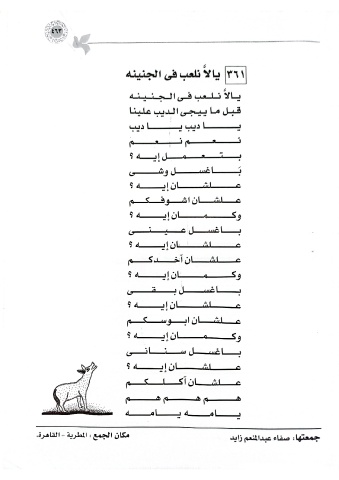 ٤٦٣
٣٦١ يالاَّ نلعب فى الجنينه
يالاَّ نلعب فى الجنينه
قبل ما ييجى الديب علينا
يا ديب يا ديب
نعم نعم
بتعمل إيه ؟
بَاغسل وشى
علشان إيه ؟
علشان اشوفكم
وكمان إيه ؟
باغسل عينى
علشان إيه ؟
علشان آخدكم
وكمان إيه ؟
باغسل بقى
علشان إيه ؟
علشان ابوسكم
وكمان إيه ؟
باغسل سنانى
علشان إيه ؟
علشان آكلكم
هم هم هم
يامه يامه
جمعتها : صفاء عبدالمنعم زايد
مكان الجمع : المطرية - القاهرة.